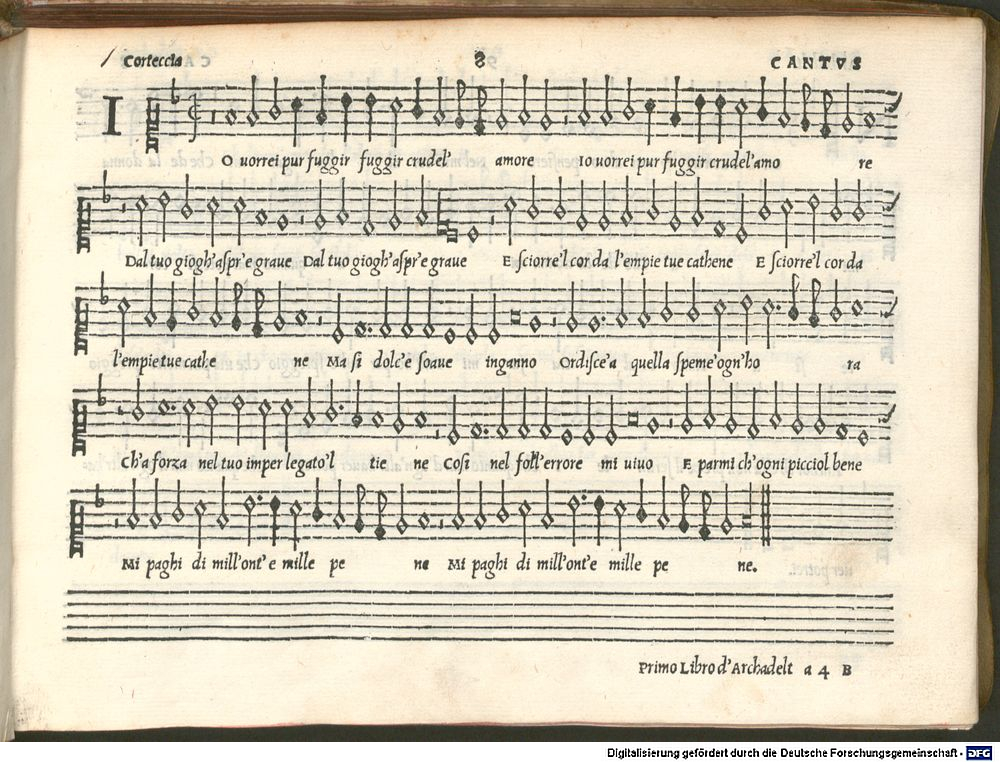 Corteccia 8 CANTVS
IO uorrei pur fuggir fuggir crudel' amore Io uorrei pur fuggir crudel'amo re
Dal tuo giogh'aspr'e graue Dal tuo giogh'aspr'e graue E sciorre'l cor da l'empie tue cathene E sciorre'l cor da
l'empie tue cathe ne Ma si dolc'e soaue inganno Ordisce'a quella speme'ogn'ho ra
Ch'a forza nel tuo imper legato'l tie ne Cosi nel foll'errore mi uiuo E parmi ch'ogni picciol bene
Mi paghi di mill'ont'e mille pe ne Mi paghi di mill'ont'e mille pe ne.
Primo Libro d'Archadelt a 4 B
Digitalisierung gefördert durch die Deutsche Forschungsgemeinschaft - DFG